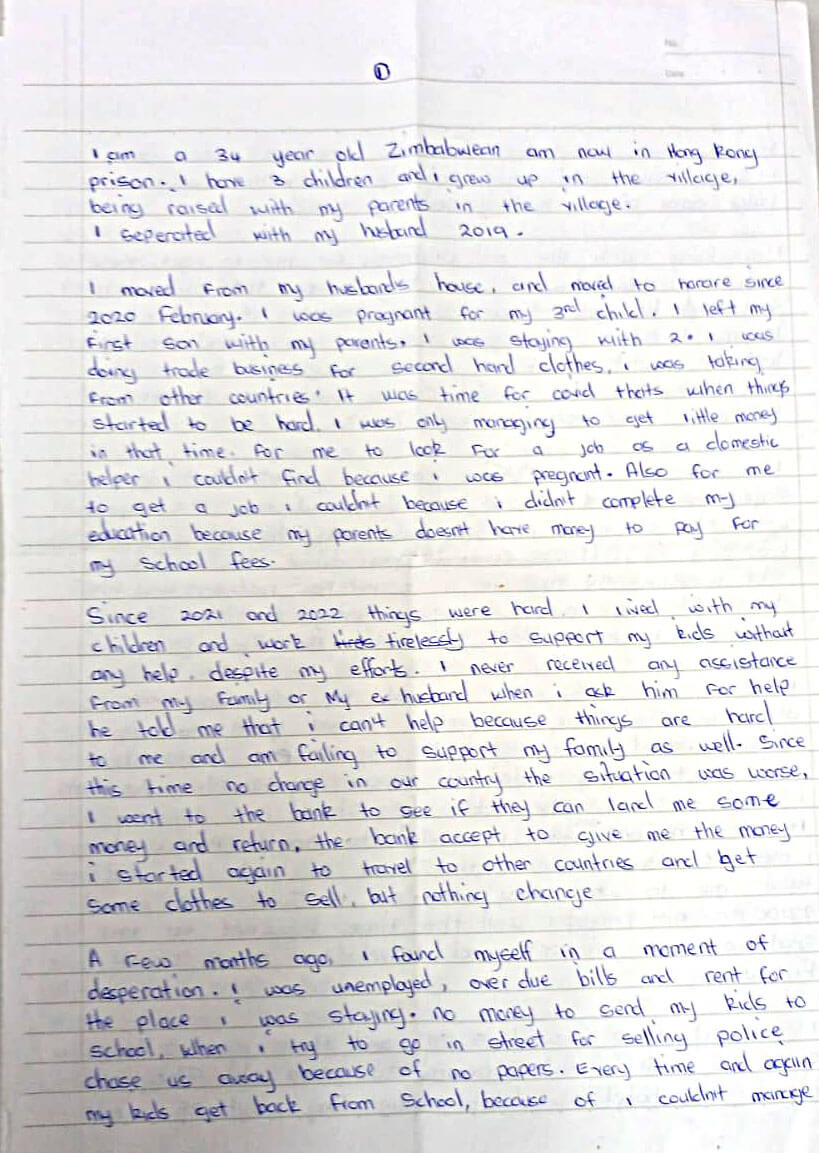 ①
I am a 34 year old Zimbabwean am now in Hong Kong
prison. I have 3 children and i grew up in the village,
being raised with my parents in the village.
I seperated with my husband 2019.
I moved from my husband's house, and moved to harare since
2020 February. I was pregnant for my 3rd child. I left my
first son with my parents. I was staying with 2. I was
doing trade business for second hand clothes, i was taking
from other countries. It was time for covid thats when things
started to be hard. I was only managing to get little money
in that time. For me to look for a job as a domestic
helper i couldn't find because i was pregnant. Also for me
to get a job i couldn't because i didn't complete my
education because my parents doesn't have money to pay for
my school fees.
Since 2021 and 2022 things were hard. I lived with my
children and work tirelessly to support my kids without
any help. despite my efforts. I never received any assistance
from my family or My ex husband when i ask him for help
he told me that i can't help because things are hard
to me and am failing to support my family as well. Since
this time no change in our country the situation was worse,
I went to the bank to see if they can land me some
money and return, the bank accept to give me the money
i started again to travel to other countries and get
some clothes to sell, but nothing change
A few months ago, I found myself in a moment of
desperation. I was unemployed, over due bills and rent for
the place i was staying. no money to send my kids to
school, when i try to go in street for selling police
chase us away because of no papers. Every time and again
my kids get back from school, because of i couldn't manage